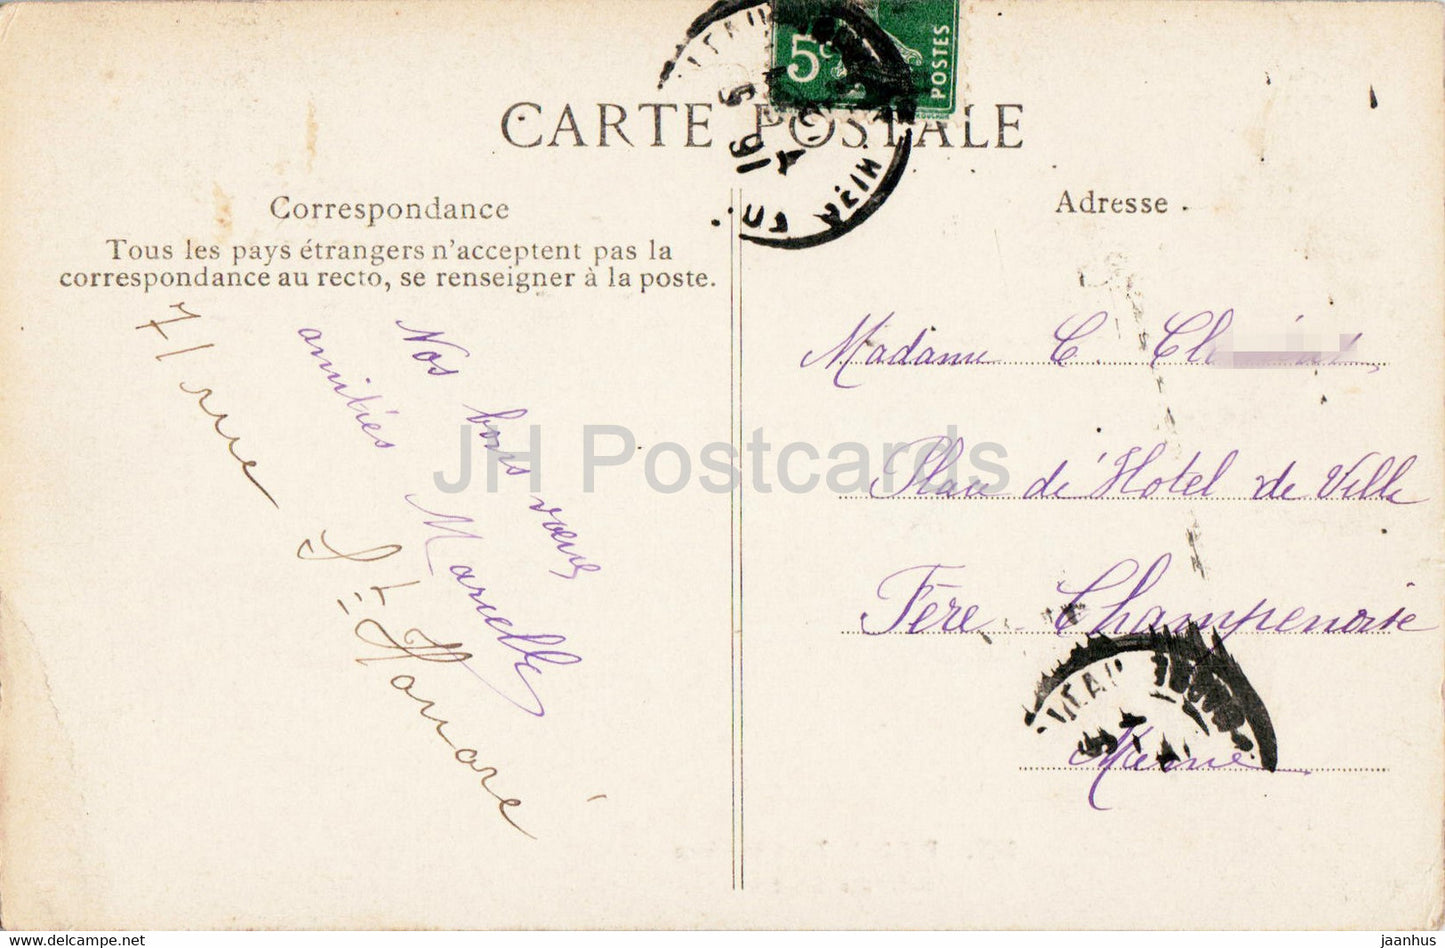 CARTE POSTALE
5c
POSTES
Correspondance
Tous les pays étrangers n'acceptent pas la
correspondance au recto, se renseigner à la poste.
Nos bons vœux
amitiés Marcelle
7 rue St Honoré
Adresse.
Madame C.
Place de l'Hotel de Ville
Fère Champenoise
Marne
JH Postcards
www.delcampe.net
jaanhus